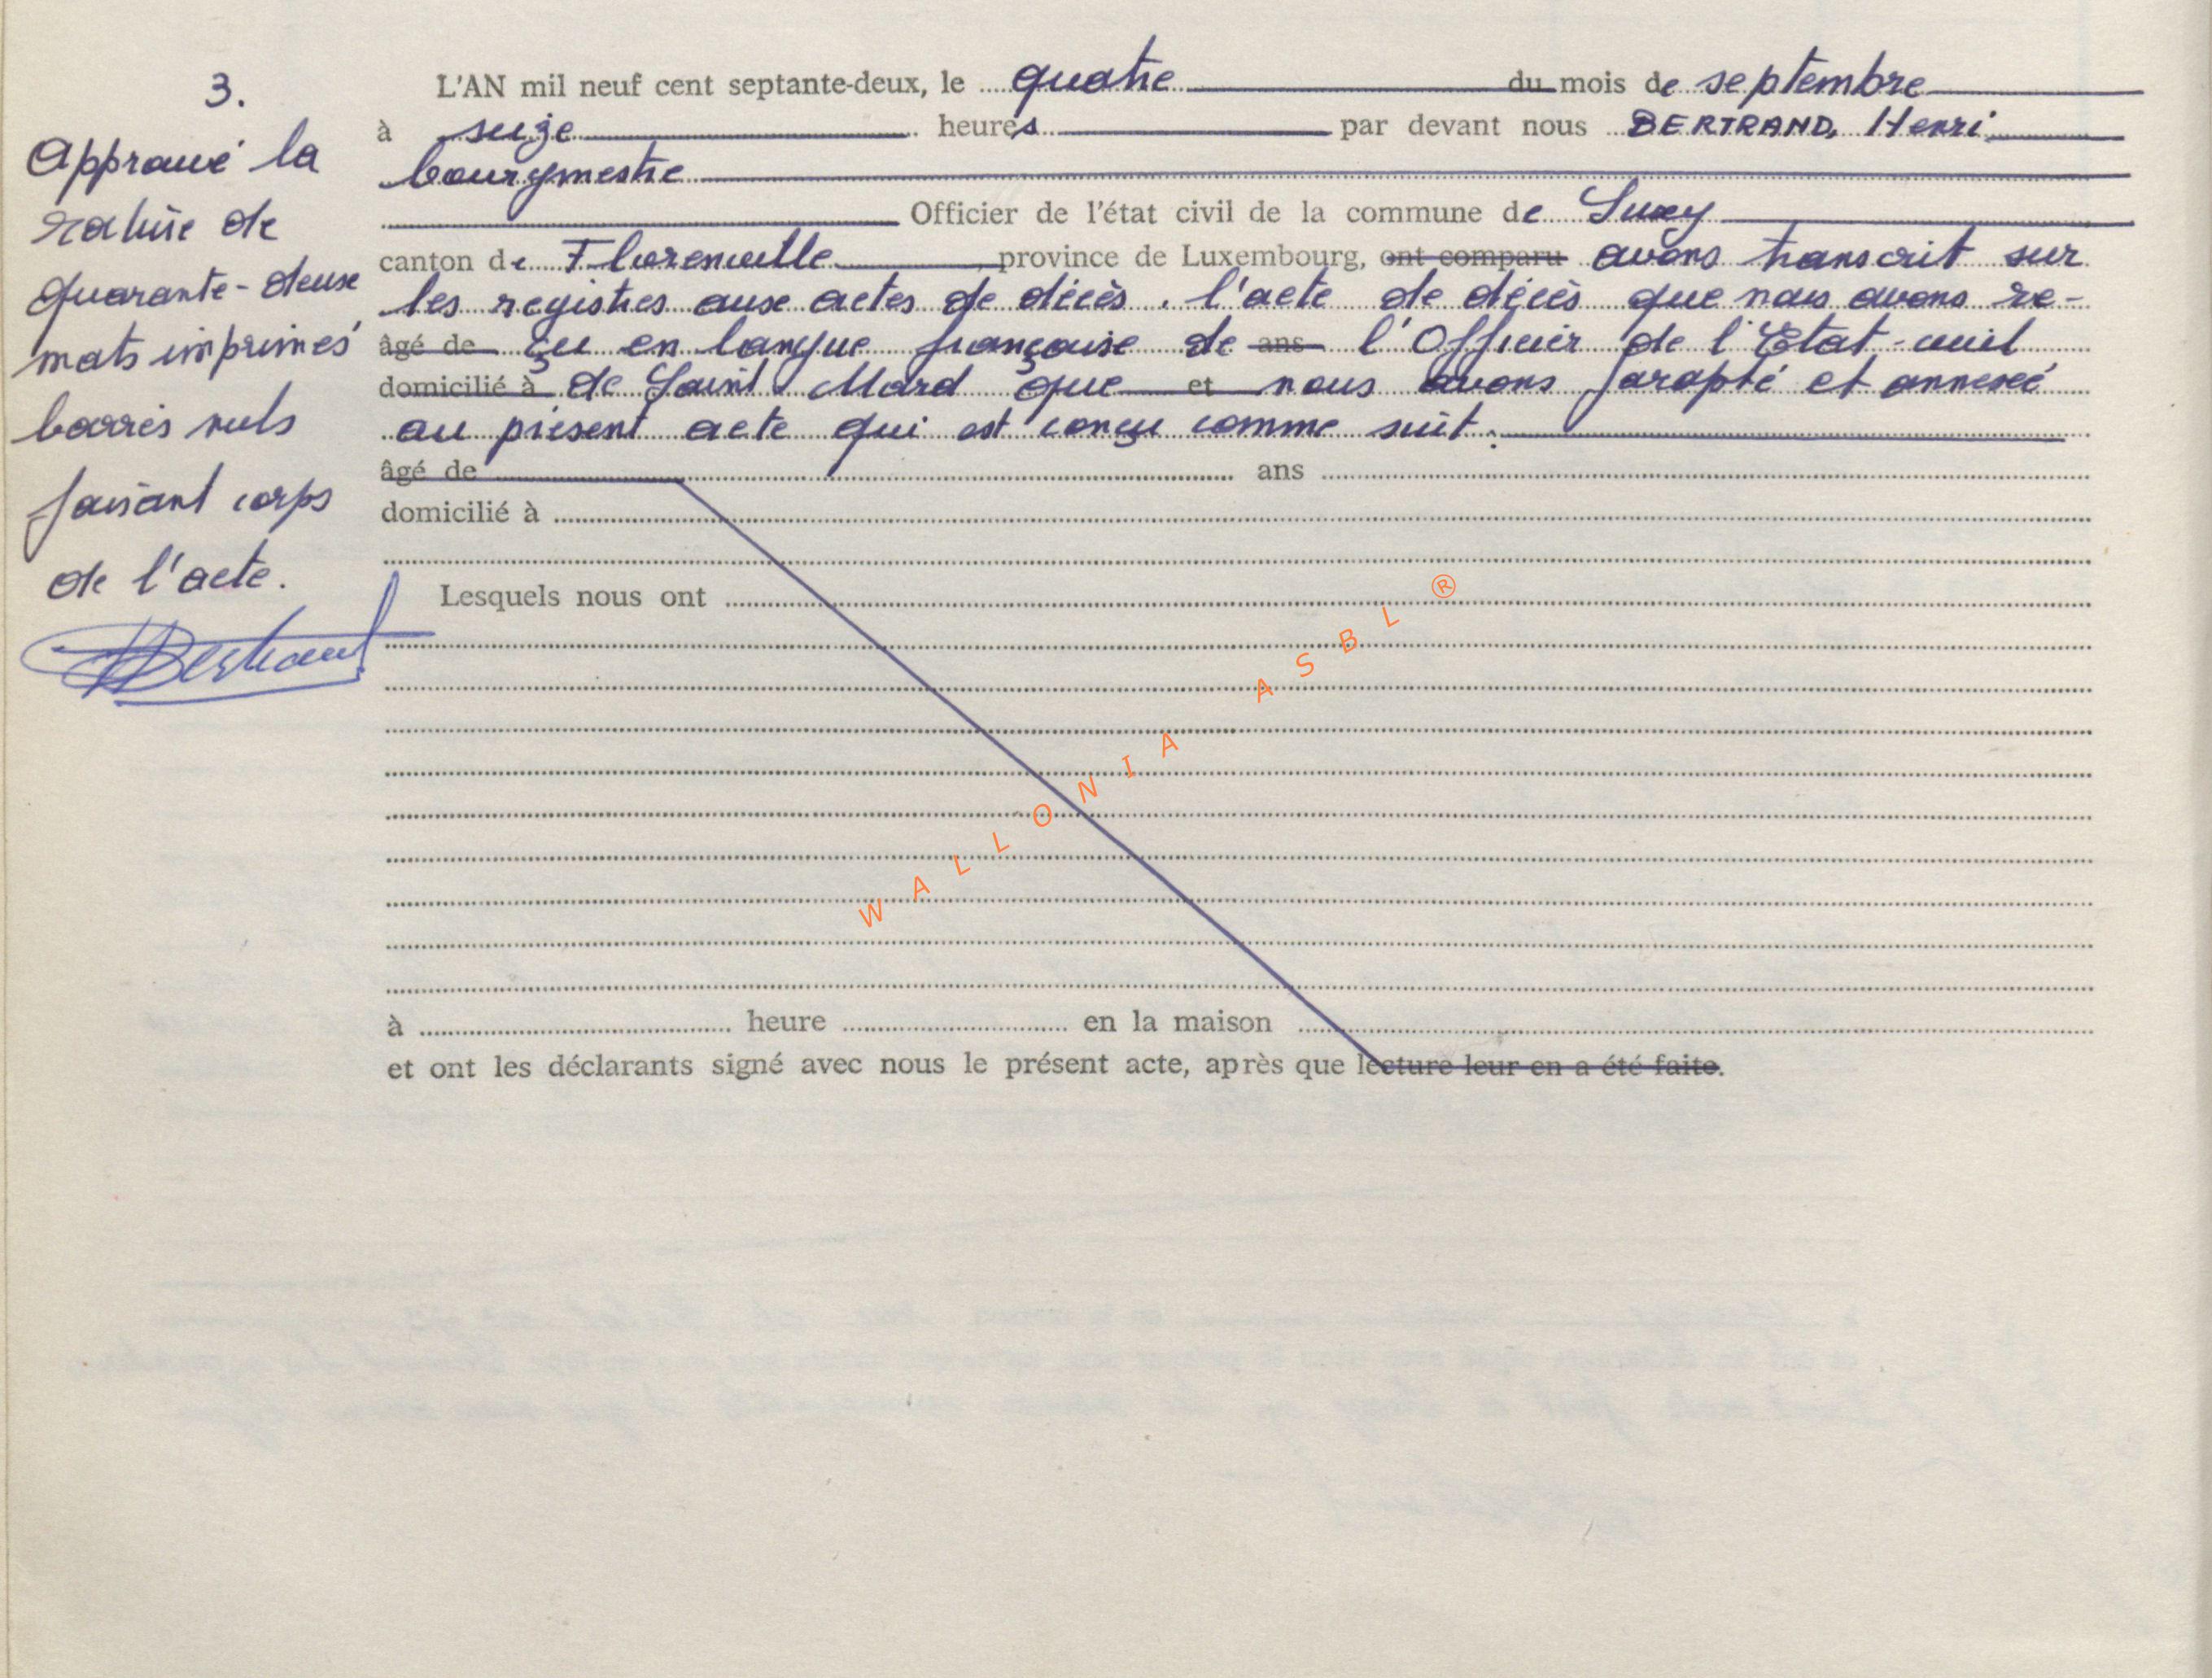 3.
Approuvé la
rature de
quarante-deux
mots imprimés
barrés nuls
faisant corps
de l'acte.
HBertrand
L'AN mil neuf cent septante-deux, le quatre du mois de septembre
à seize heures par devant nous BERTRAND, Henri
bourgmestre
Officier de l'état civil de la commune de Suxy
canton de Florenville province de Luxembourg, ont comparu avons transcrit sur
les registres aux actes de décès, l'acte de décès que nous avons re-
âgé de çu en langue française de ans l'Officier de l'Etat-civil
domicilié à de Saint-Mard que et nous avons paraphé et annexé
au présent acte qui est conçu comme suit:
âgé de ans
domicilié à
Lesquels nous ont
à heure en la maison
et ont les déclarants signé avec nous le présent acte, après que lecture leur en a été faite.
WALLONIA ASBL ®